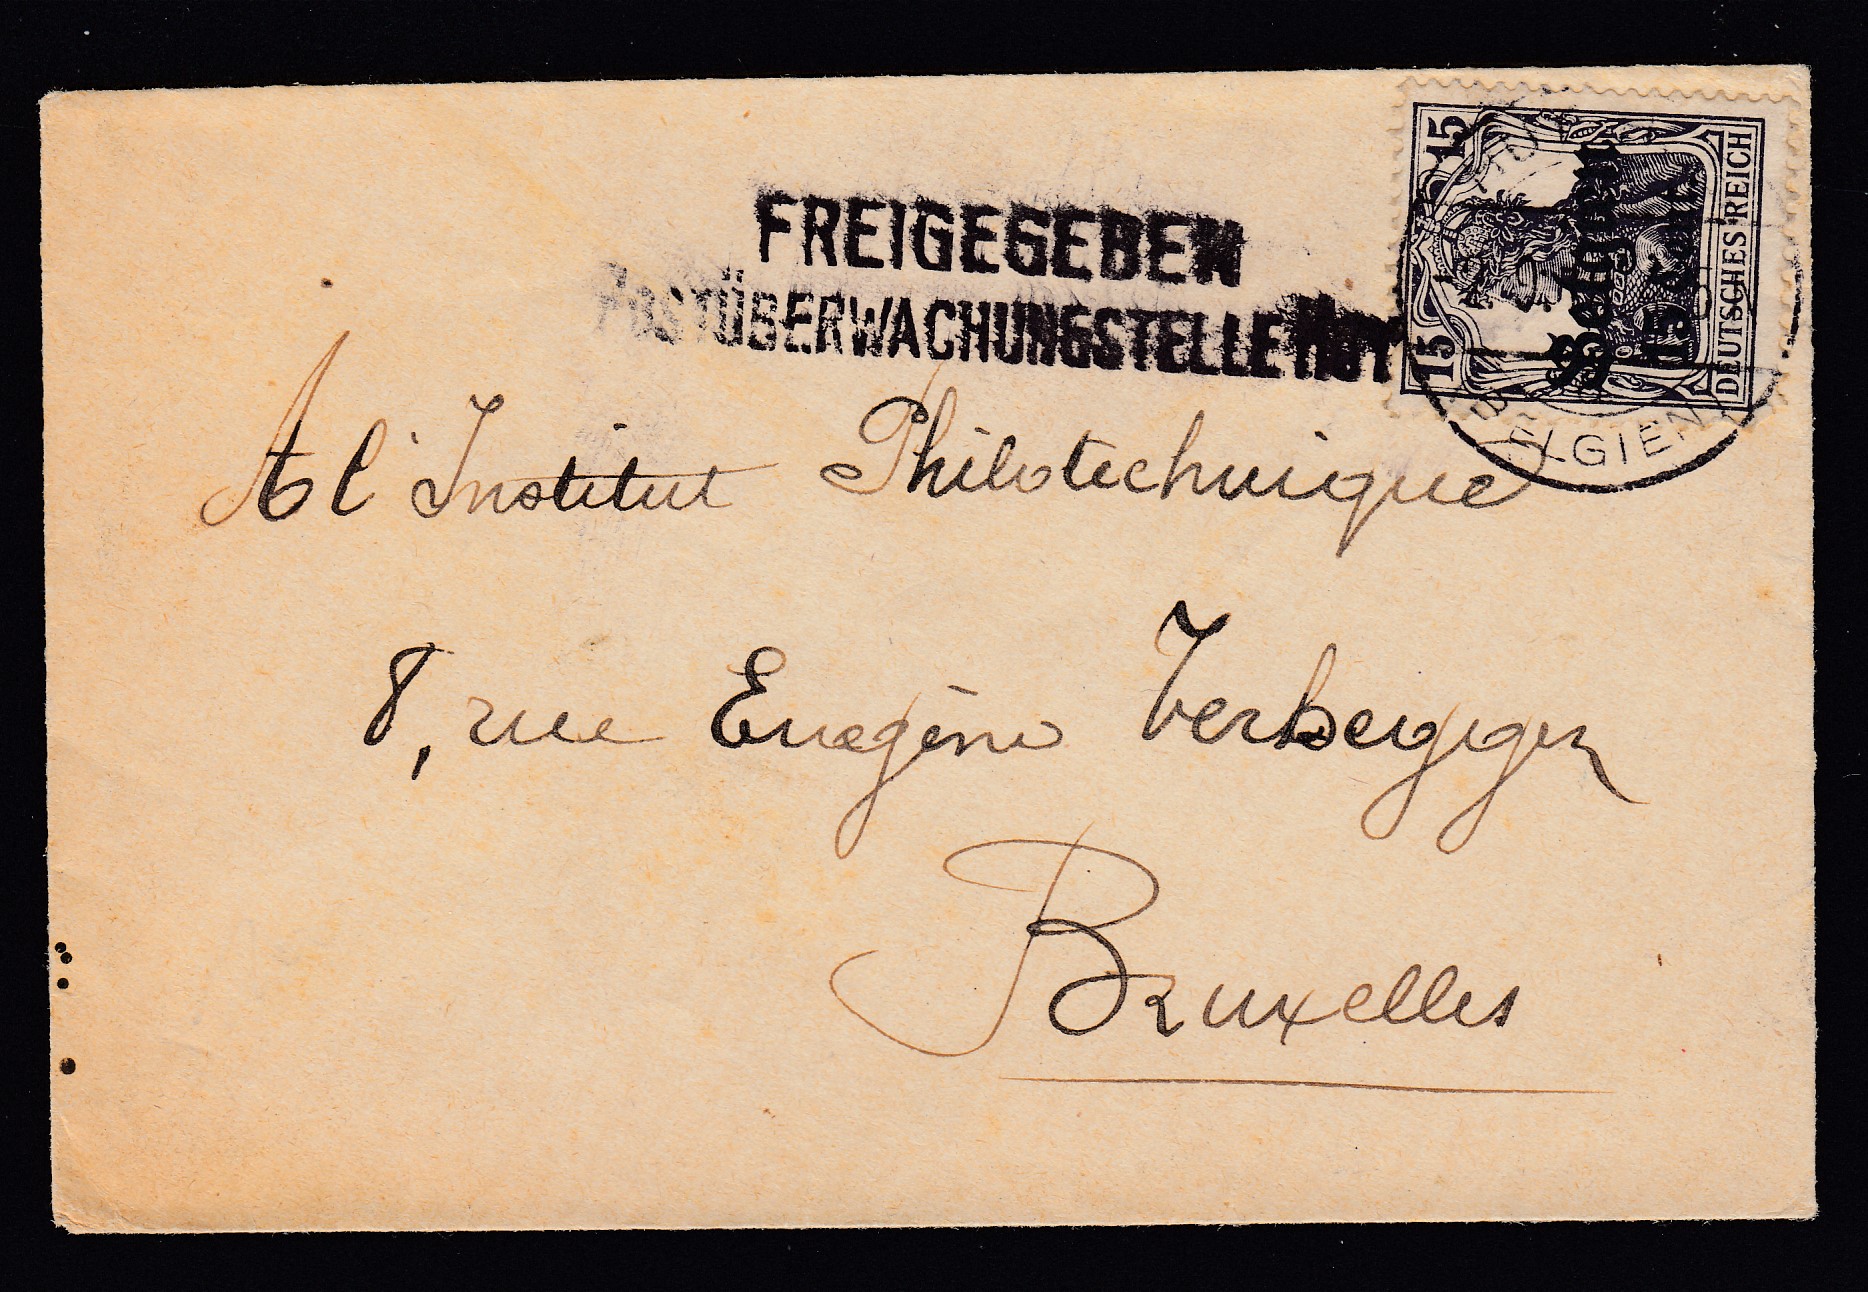 FREIGEGEBEN
POSTÜBERWACHUNGSTELLE HUY
15 15
DEUTSCHES REICH
Belgien
15 Cent.
BELGIEN
A l'Institut Philotechnique
8, rue Eugène Verheggen
Bruxelles